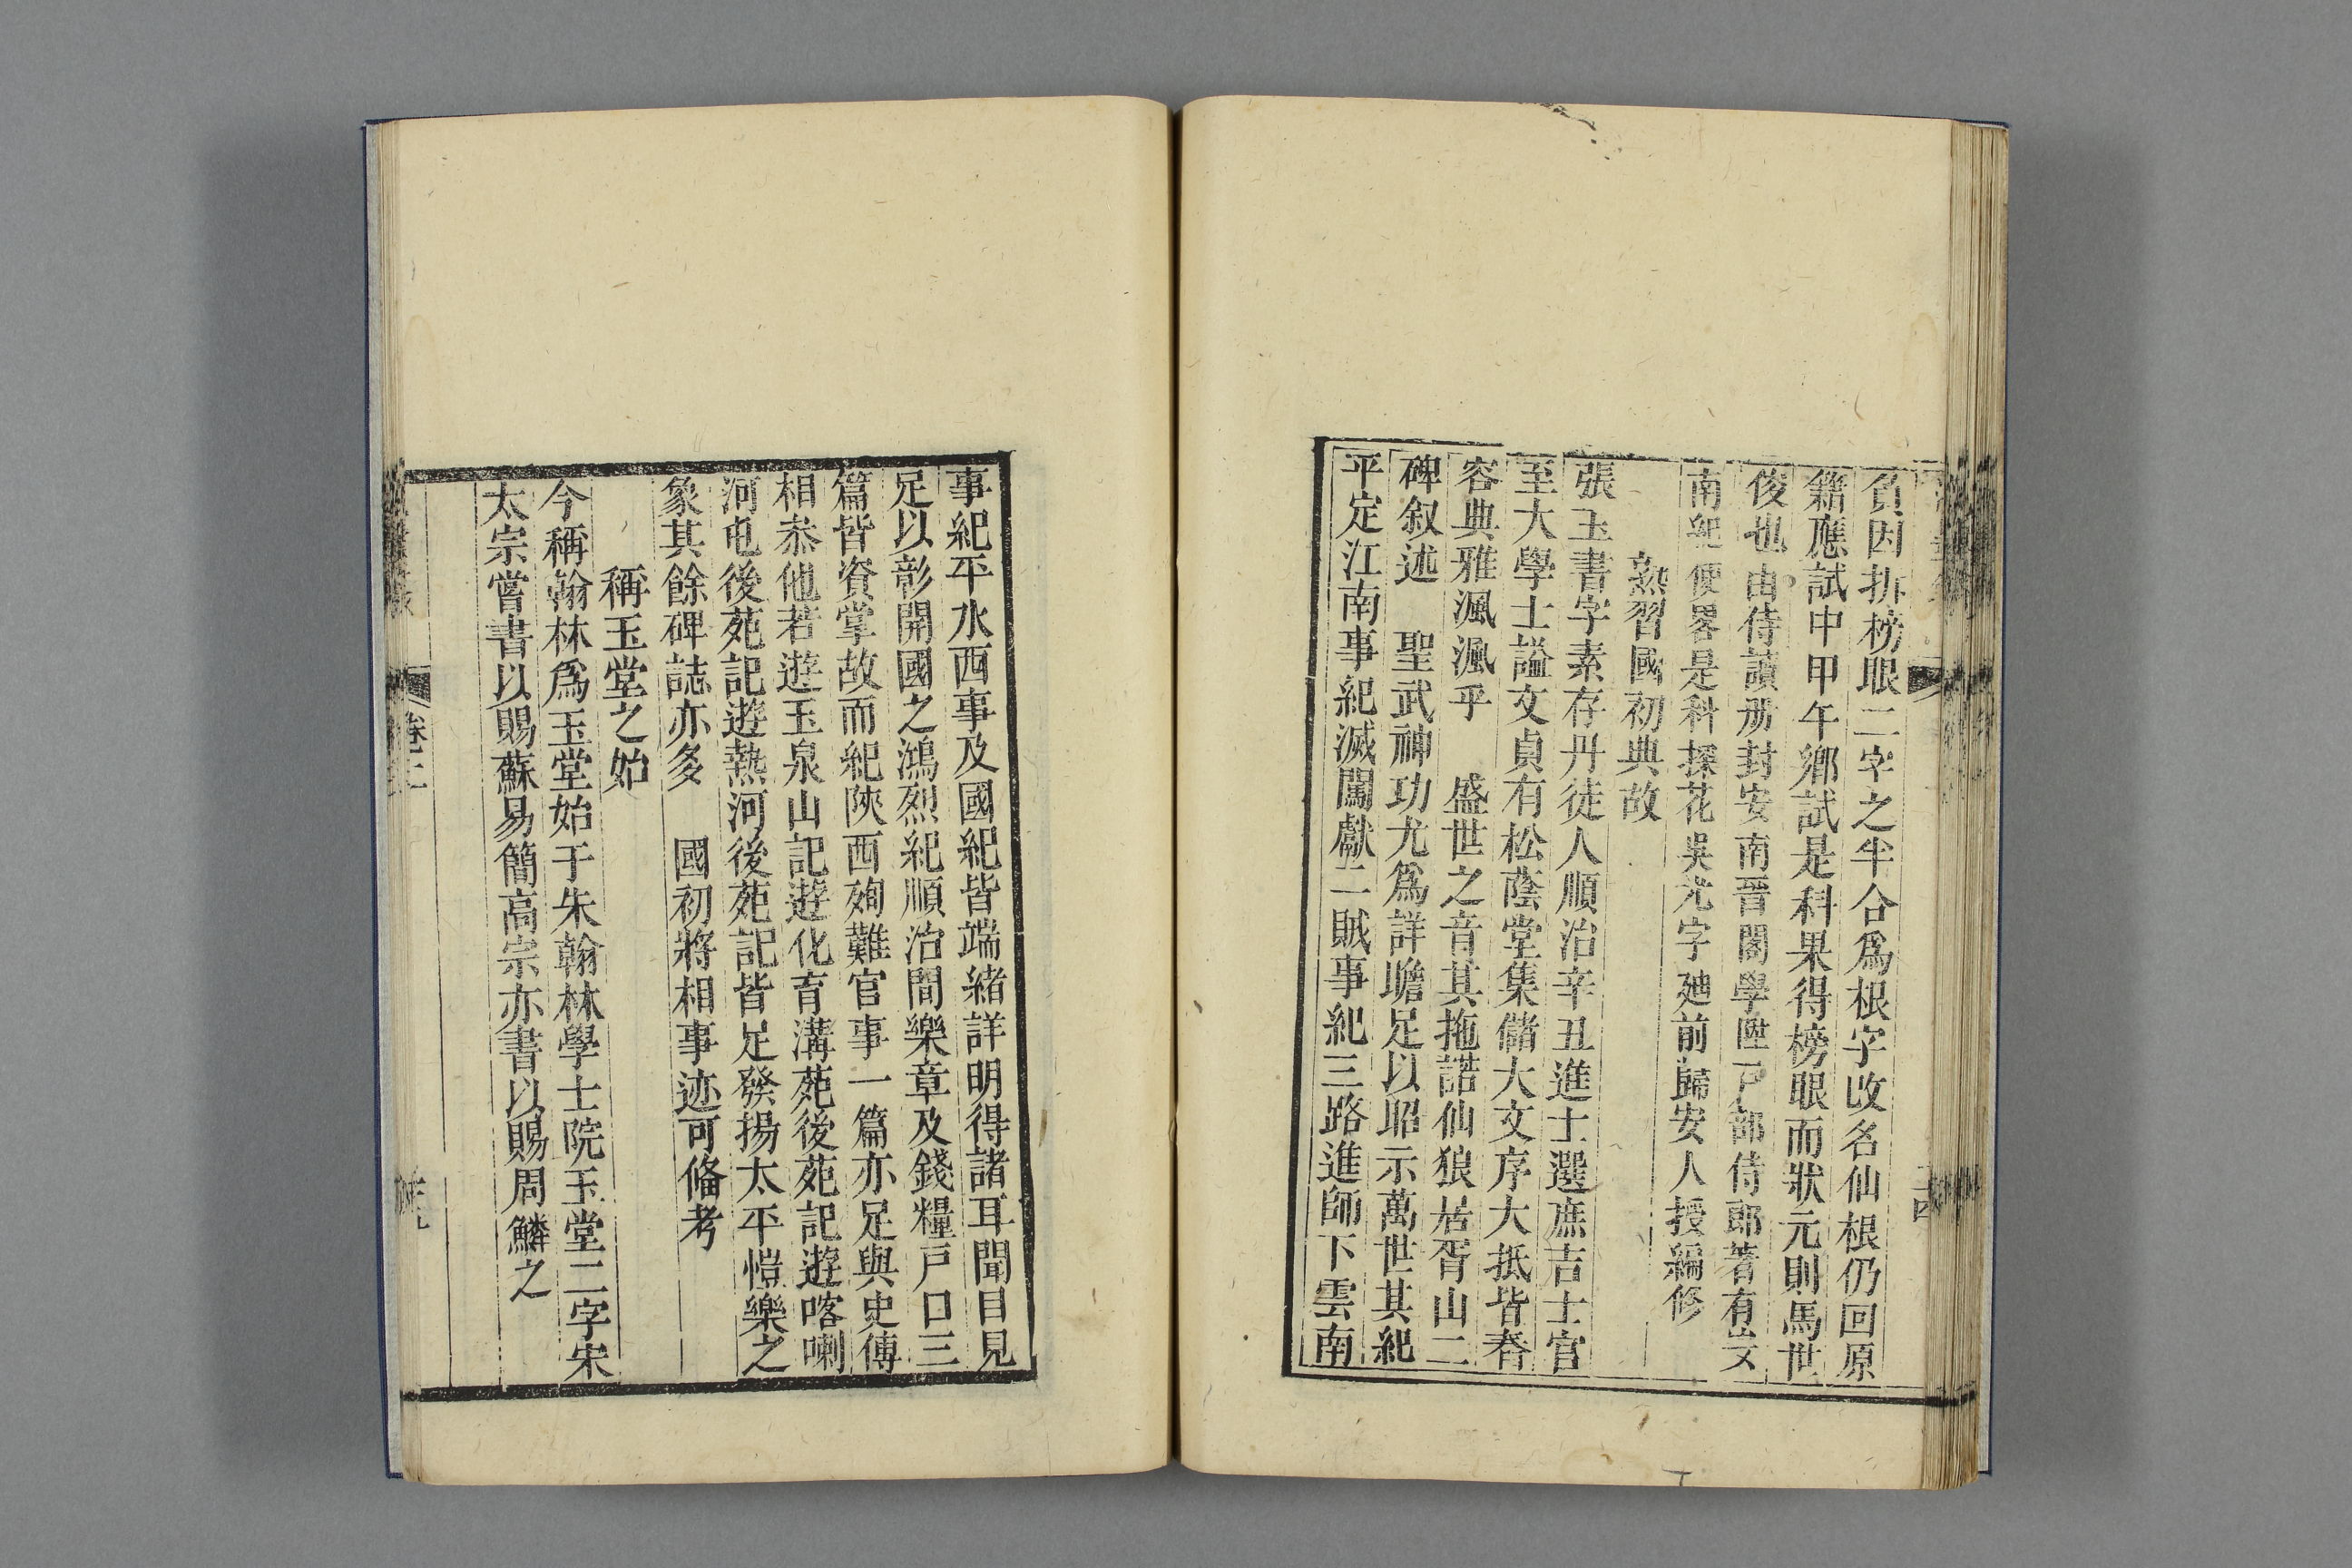 貟因拆榜眼二字之半合爲根字改名仙根仍回原
籍應試中甲午鄉試是科果得榜眼而狀元則馬世
俊也由侍讀册封安南晉閣學陞戸部侍郎著有安
南紀使畧是科探花吳光字廸前歸安人授編修
熟習國初典故
張玉書字素存丹徒人順治辛丑進士選庶吉士官
至大學士謚文貞有松蔭堂集儲大文序大抵皆舂
容典雅渢渢乎　盛世之音其拖諾仙狼居胥山二
碑叙述　聖武神功尤爲詳贍足以昭示萬世其紀
平定江南事紀滅闖獻二賊事紀三路進師下雲南
事紀平水西事及國紀皆端緒詳明得諸耳聞目見
足以彰開國之鴻烈紀順治間樂章及錢糧戸口三
篇皆資掌故而紀陝西殉難官事一篇亦足與史傳
相叅他若遊玉泉山記遊化育溝苑後苑記遊喀喇
河屯後苑記遊熱河後苑記皆足發揚太平愷樂之
象其餘碑誌亦多　國初將相事迹可俻考
稱玉堂之始
今稱翰林爲玉堂始于朱翰林學士院玉堂二字宋
太宗嘗書以賜蘇易簡高宗亦書以賜周麟之
卷二